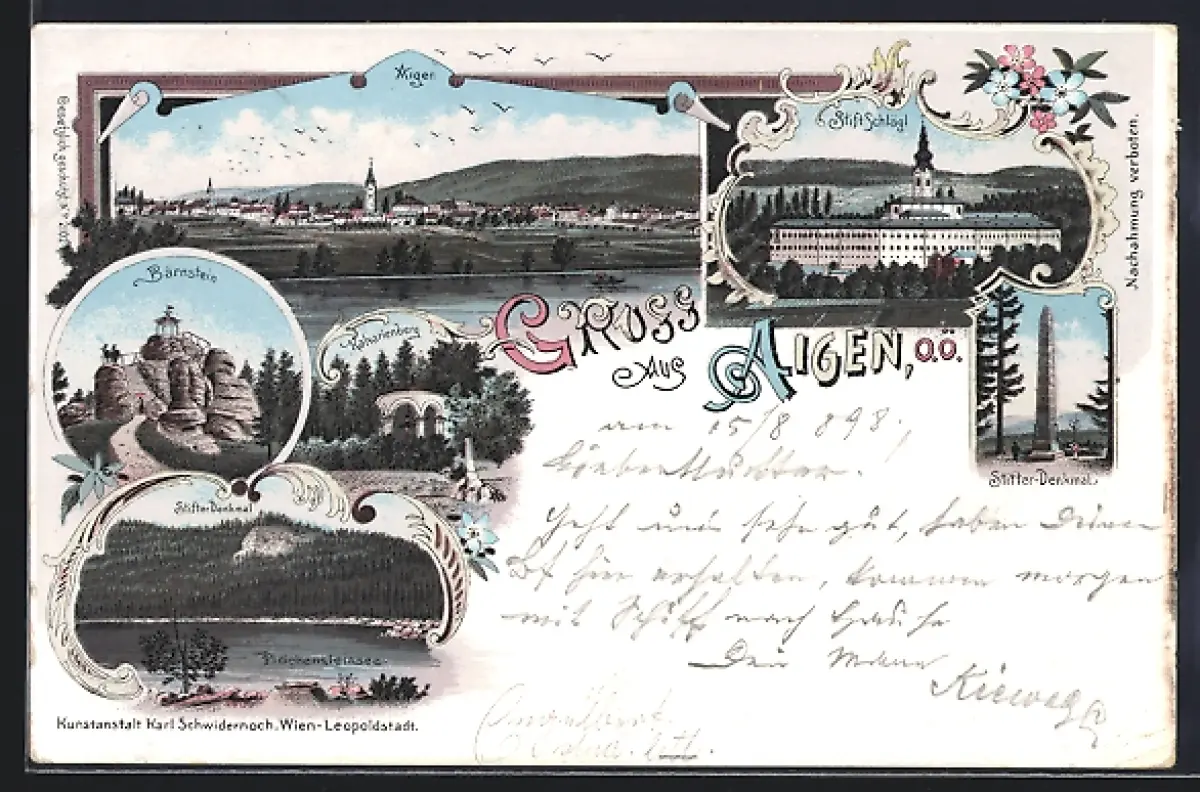 Aigen
Stift Schlägl
Gesetzlich geschützt
Nachahmung verboten.
Bärnstein
GRUSS
AUS
AIGEN, O.Ö.
Stifter-Denkmal
Stifter-Denkmal
Plöckensteinsee
am 15/8 898.
Liebe Mutter!
Geht uns sehr gut, haben Deinen
hier erhalten, kommen morgen
mit Schiff nach Hause
Dein
Kieweg
Kunstanstalt Karl Schwidernoch, Wien-Leopoldstadt.